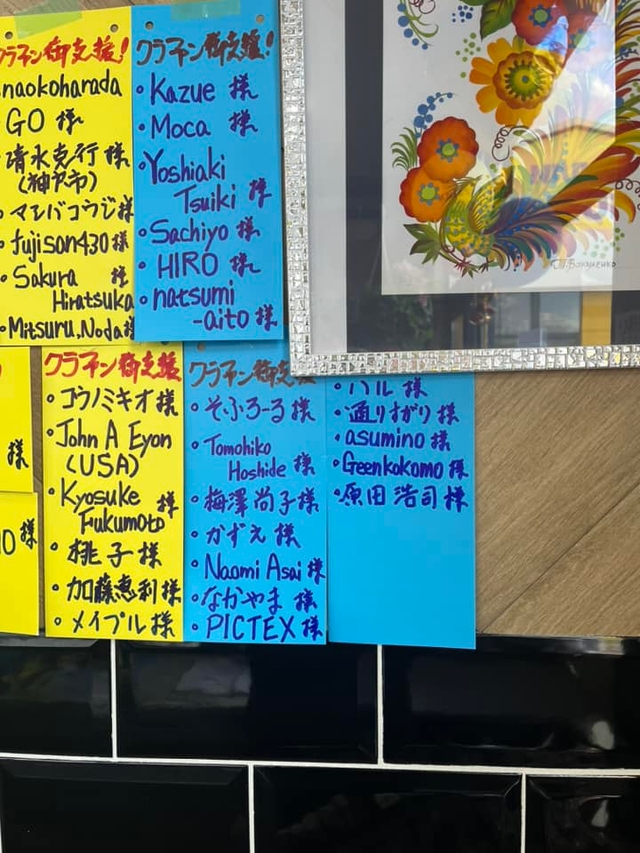 クラファン御支援!
naokoharada
・GO 様
・清水克行様
(神戸市)
・マシバコウジ様
・fujison430様
・Sakura 様
Hiratsuka
・Mitsuru,Noda様
クラファン御支援!
・Kazue 様
・Moca 様
・Yoshiaki
Tsuiki 様
・Sachiyo 様
・HIRO 様
・natsumi
-aito 様
様
様
クラファン御支援
・コウノミキオ様
・John A Eyon
(USA)
・Kyosuke 様
Fukumoto
・桃子様
・加藤恵利様
・メイプル様
クラファン御支援
・そふろーる様
・Tomohiko
Hoshide 様
・梅澤尚子様
・かずえ様
・Naomi Asai 様
・なかやま様
・PICTEX様
・ハル 様
・通りすがり様
・asumino様
・Greenkokomo様
・原田浩司様